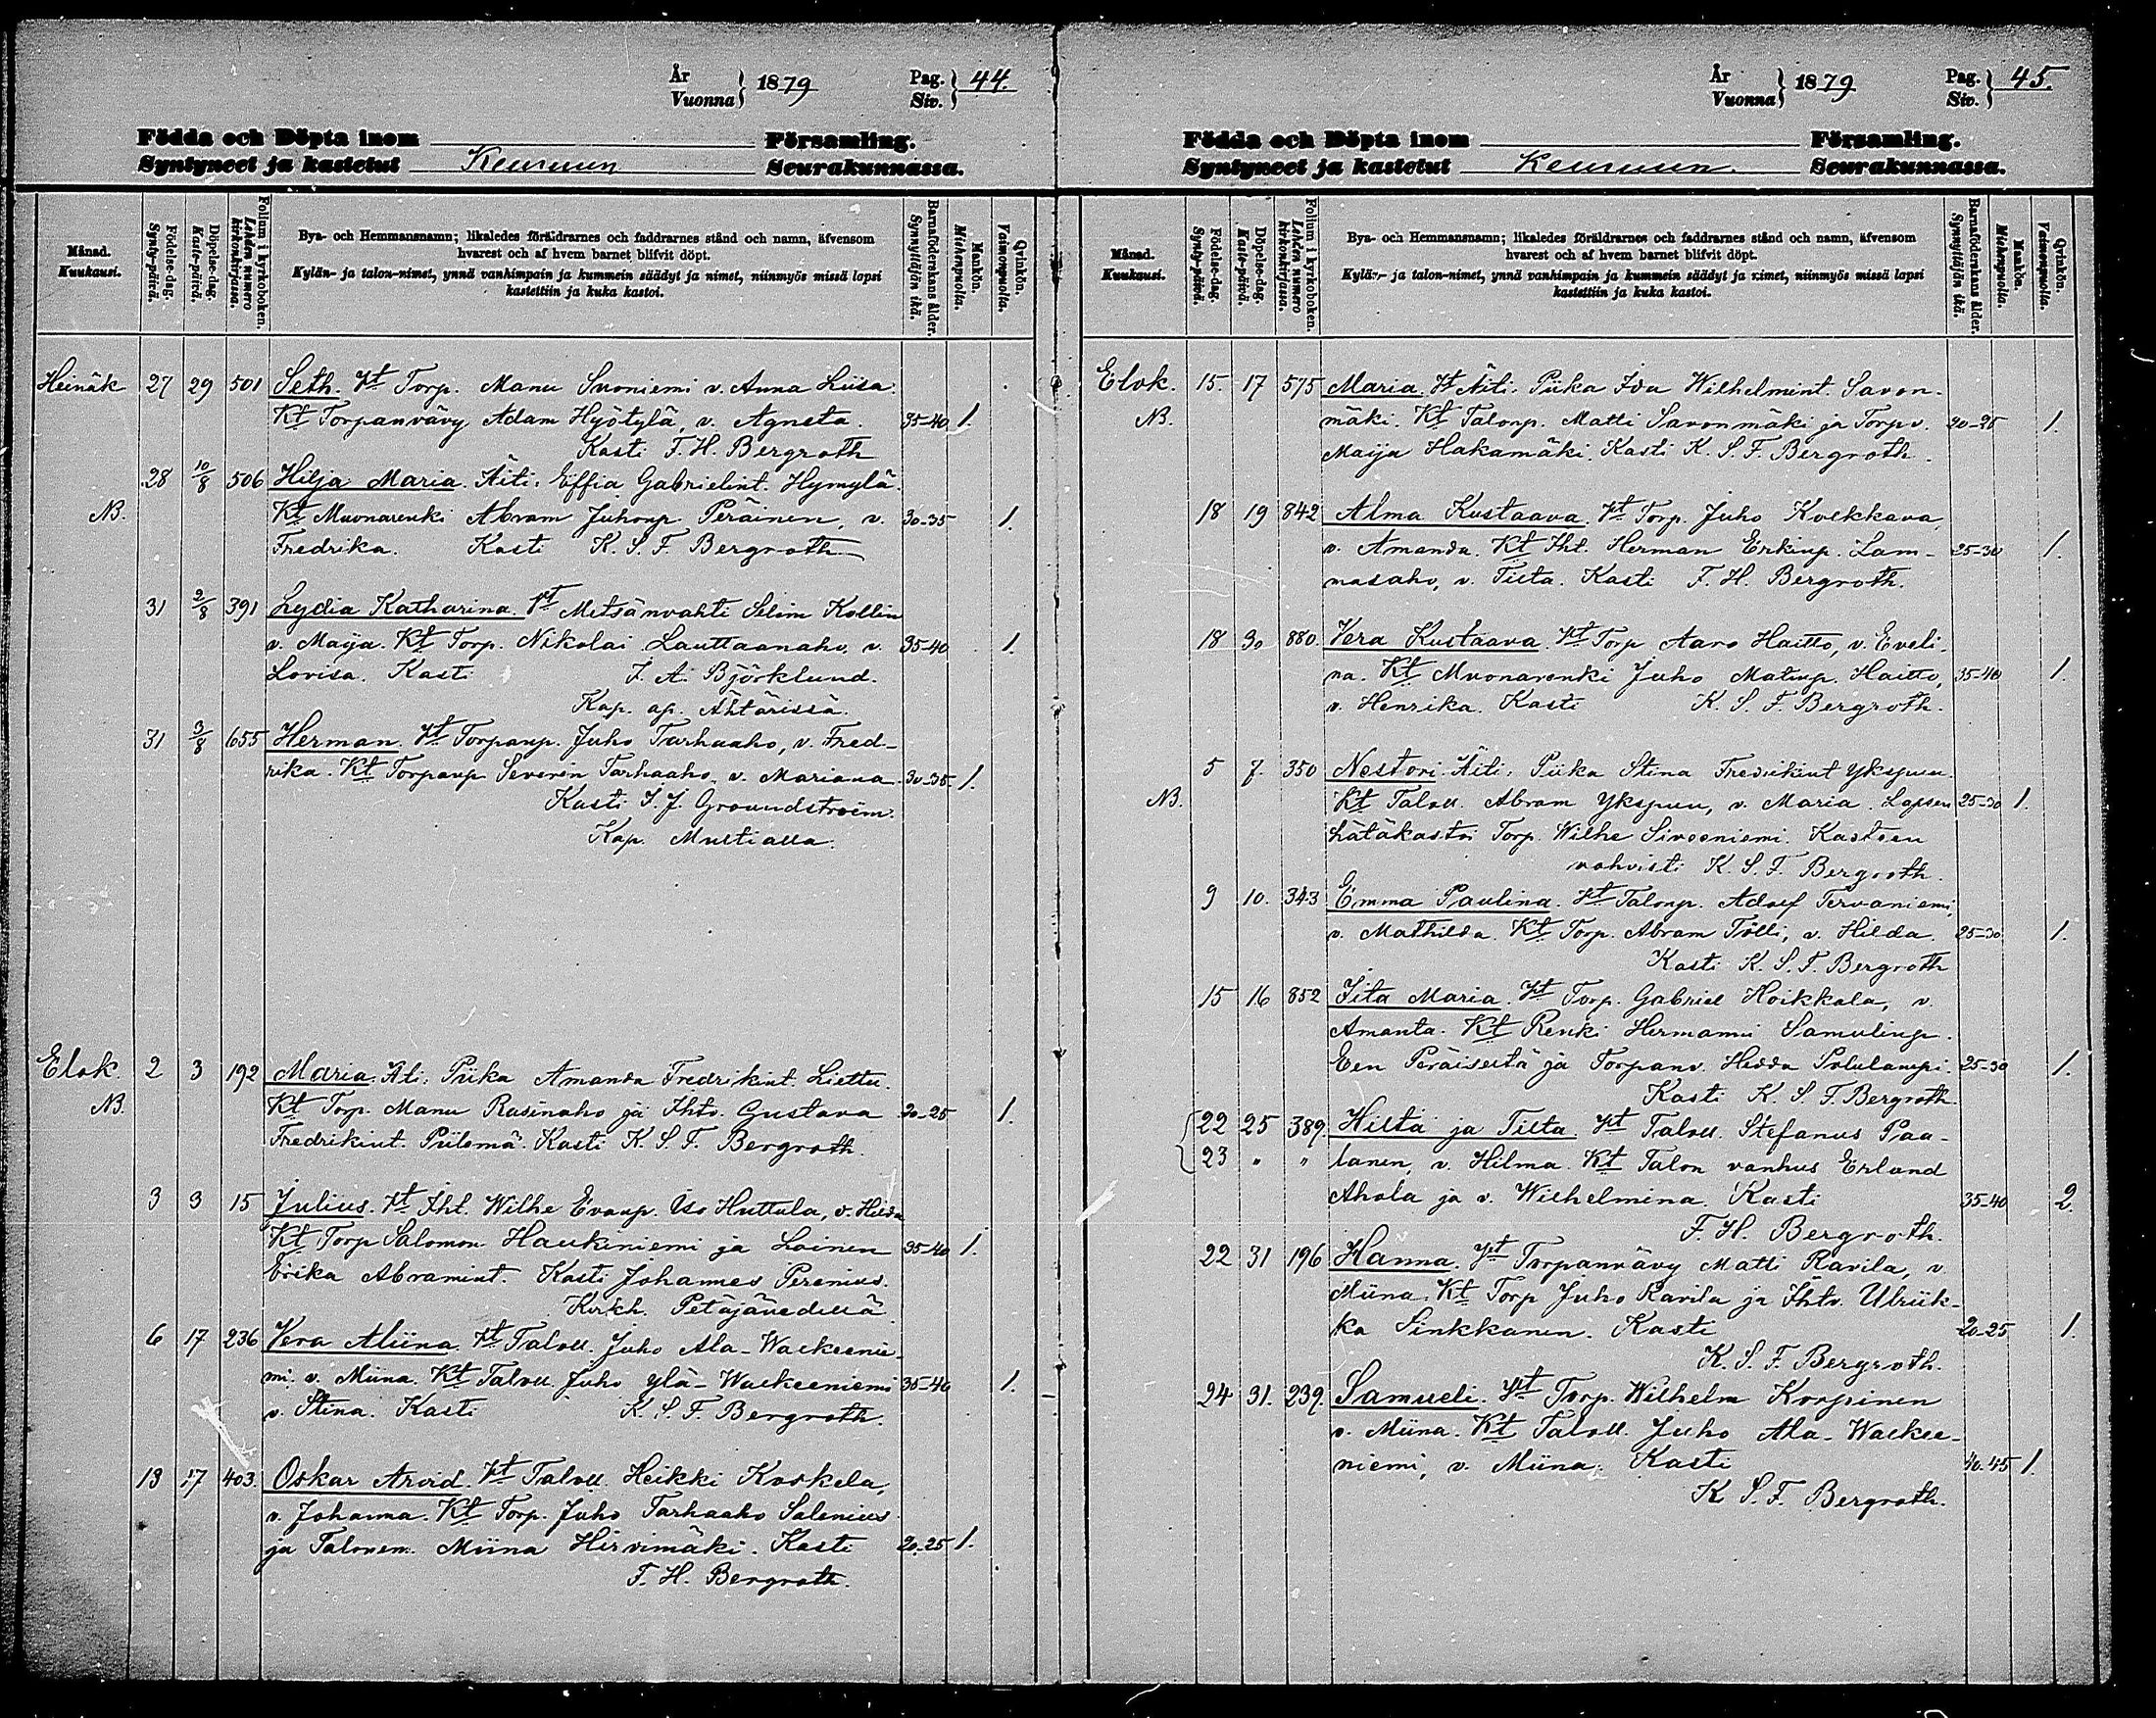 År
Vuonna } 1879
Pag.
Siv. } 44.
Födda och Döpta inom Församling.
Syntyneet ja kastetut Keuruun Seurakunnassa.
Månad.
Kuukausi.
Födelse-dag.
Synty-päivä.
Döpelse-dag.
Kaste-päivä.
Folium i kyrkoboken.
Lehden numero
kirkonkirjassa.
Bya- och Hemmansnamn; likaledes föräldrarnes och faddrarnes stånd och namn, äfvensom
hvarest och af hvem barnet blifvit döpt.
Kylän- ja talon-nimet, ynnä vanhimpain ja kummein säädyt ja nimet, niinmyös missä lapsi
kastettiin ja kuka kastoi.
Barnaföderskans ålder.
Synnyttäjän ikä.
Mankön.
Miehenpuolta.
Qvinkön.
Vaimonpuolta.
Heinäk 27 29 501 Seth. Vt Torp. Manu Suoniemi v. Anna Liisa.
Kt Torpanvävy Adam Hyötylä, v. Agneta. 35-40 1.
Kasti F. H. Bergroth
28 10/8 506 Hilja Maria. Äiti: Effia Gabrielint. Hymylä.
NB. Kt Muonarenki Abram Juhonp. Peräinen, v. 30-35 1.
Fredrika. Kasti K. S. F. Bergroth
31 2/8 391 Lydia Katharina. Vt Metsänvahti Selim Kollin
v. Maija. Kt Torp. Nikolai Lauttaanaho, v. 35-40 1.
Lovisa. Kasti J. A. Björklund.
Kap. ap. Ähtärissä.
31 3/8 655 Herman. Vt Torpanp. Juho Tarhaaho, v. Fred-
rika. Kt Torpanp Severin Tarhaaho, v. Mariana 30-35 1.
Kasti I. J. Groundstroëm.
Kap. Multialla.
Elok. 2 3 192 Maria. Äiti: Piika Amanda Fredrikint. Liettu.
NB. Kt Torp. Manu Rasinaho ja Ihtv. Gustava 20-25 1.
Fredrikint. Piilemä. Kasti K. S. F. Bergroth.
3 3 15 Julius. Vt Iht. Wilhe Evanp. Iso Huttula, v. Hilda
Kt Torp Salomon Haukiniemi ja Loinen 35-40 1.
Erika Abramint. Kasti Johannes Perenius.
Kirkh. Petäjävedellä
6 17 236 Vera Aliina. Vt Taloll. Juho Ala-Walkeenie-
mi. v. Miina. Kt Taloll Juho Ylä-Walkeeniemi 35-40 1.
v. Stina. Kasti K. S. F. Bergroth.
13 17 403. Oskar Arvid. Vt Taloll. Heikki Koskela,
v. Johanna. Kt Torp. Juho Tarhaaho Salenius
ja Talonem. Miina Hirvimäki. Kasti 20-25 1.
F. H. Bergroth.
År
Vuonna } 1879
Pag.
Siv. } 45.
Födda och Döpta inom Församling.
Syntyneet ja kastetut Keuruun. Seurakunnassa.
Månad.
Kuukausi.
Födelse-dag.
Synty-päivä.
Döpelse-dag.
Kaste-päivä.
Folium i kyrkoboken.
Lehden numero
kirkonkirjassa.
Bya- och Hemmansnamn; likaledes föräldrarnes och faddrarnes stånd och namn, äfvensom
hvarest och af hvem barnet blifvit döpt.
Kylän- ja talon-nimet, ynnä vanhimpain ja kummein säädyt ja nimet, niinmyös missä lapsi
kastettiin ja kuka kastoi.
Barnaföderskans ålder.
Synnyttäjän ikä.
Mankön.
Miehenpuolta.
Qvinkön.
Vaimonpuolta.
Elok. 15. 17 575 Maria. Vt Äiti: Piika Ida Wilhelmint. Savon-
NB. mäki. Kt Talonp. Matti Savonmäki ja Torp v. 20-25 1.
Maija Hakamäki. Kasti K. S. F. Bergroth.
18 19 842 Alma Kustaava. Vt Torp. Juho Kolkkava,
v. Amanda. Kt Iht. Herman Erkinp. Lam- 25-30 1.
masaho, v. Tilta. Kasti F. H. Bergroth.
18 30 880. Vera Kustaava. Vt Torp Aaro Haitto, v. Eveli-
na. Kt Muonarenki Juho Matinp. Haitto, 35-40 1.
v. Henrika. Kasti K. S. F. Bergroth.
5 7. 350 Nestori. Äiti: Piika Stina Fredrikint Ykspuu.
NB. Kt Taloll. Abram Ykspuu, v. Maria. Lapsen 25-30 1.
hätäkastoi Torp. Wilhe Sivoeniemi. Kasteen
vahvisti K. S. F. Bergroth.
9 10. 343 Emma Paulina. Vt Talonp. Adolf Tervaniemi,
v. Mathilda. Kt Torp. Abram Tölli, v. Hilda. 25-30 1.
Kasti K. S. F. Bergroth
15 16 852 Iita Maria. Vt Torp. Gabriel Hoikkala, v.
Amanta. Kt Renki Hermanni Samulinp.
Een Peräiseltä ja Torpanv. Hedda Pololampi. 25-30 1.
Kasti K. S. F. Bergroth.
{ 22 25 389. Hilta ja Tilta. Vt Taloll. Stefanus Paa-
23 " " lanen, v. Hilma. Kt Talon vanhus Erland
Ahola ja v. Wilhelmina. Kasti 35-40 2.
F. H. Bergroth.
22 31 196 Hanna. Vt Torpanvävy Matti Ravila, v.
Miina. Kt Torp Juho Ravila ja Ihtv. Ulriik-
ka Sinkkanen. Kasti 20-25 1.
K. S. F. Bergroth.
24 31. 239. Samueli. Vt Torp. Wilhelm Korpinen
v. Miina. Kt Taloll. Juho Ala-Walkee-
niemi, v. Miina. Kasti 40-45 1.
K S. F. Bergroth.